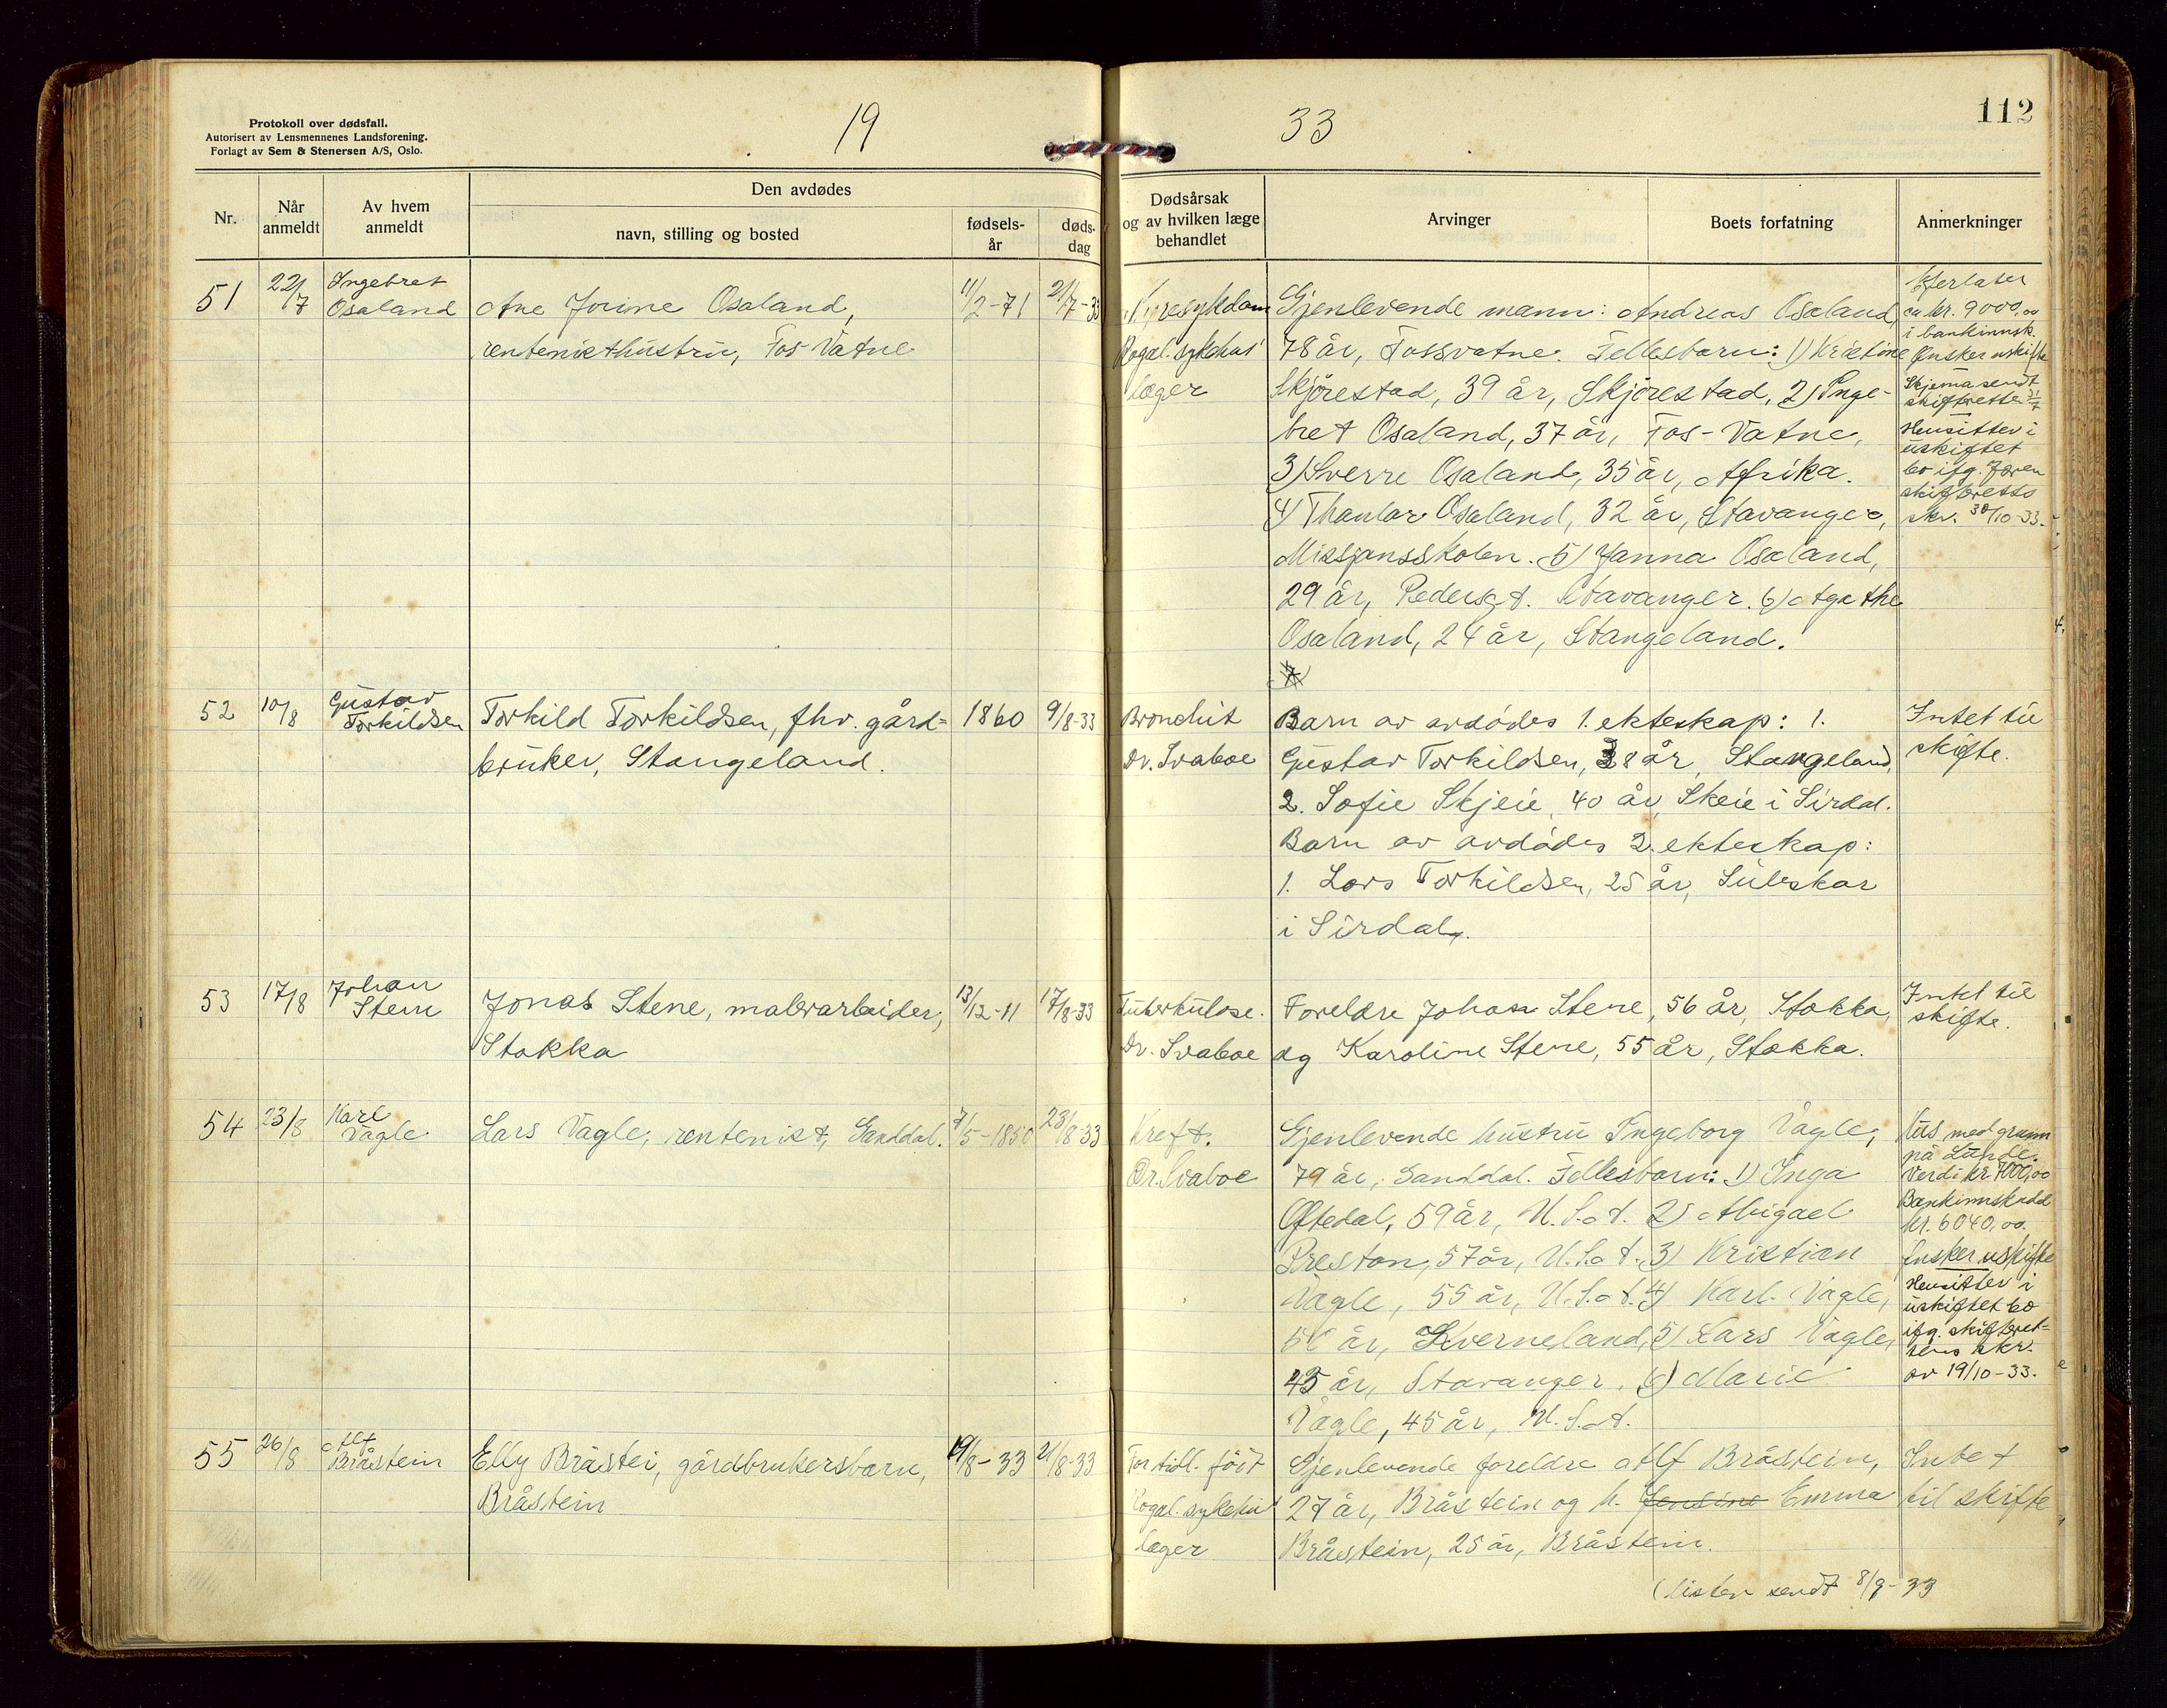 Protokoll over dødsfall.
Autorisert av Lensmennenes Landsforening.
Forlagt av Sem & Stenersen A/S, Oslo.
19
33
112
Nr.
Når
anmeldt
Av hvem
anmeldt
Den avdødes
navn, stilling og bosted
fødsels-
år
døds-
dag
Dødsårsak
og av hvilken læge
behandlet
Arvinger
Boets forfatning
Anmerkninger
51
22/7
Ingebret
Osaland
Ane Jorine Osaland,
rentenisthustru, Fos-Vatne
11/2-71
21/7-33
Nyresykdom
Rogal. sykehus'
læger
Gjenlevende mann: Andreas Osaland,
78 år, Fossvatne. Fellesbarn: 1) Kristine
Skjörestad, 39 år, Skjörestad, 2) Inge-
bret Osaland, 37 år, Fos-Vatne,
3) Sverre Osaland, 35 år, Afrika.
4) Osaland, 32 år, Stavanger,
Missjonsskolen. 5) Janna Osaland,
29 år, Pedersgt. Stavanger. 6) Agathe
Osaland, 24 år, Stangeland.
Efterlater
ca kr. 9000,00
i bankinnsk.
Ønsker uskifte
Skjema sendt
skifteretten 31/7
Hensitter i
uskiftet
bo ifg. Jæren
skifteretts
skr. 30/10-33.
52
10/8
Gustav
Torkildsen
Torkild Torkildsen, fhv. gård-
bruker, Stangeland.
1860
9/8-33
Bronchit
Dr. Svaboe
Barn av avdödes 1. ekteskap: 1.
Gustav Torkildsen, 38 år, Stangeland,
2. Sofie Skjeie, 40 år, Skeie i Sirdal.
Barn av avdödes 2. ekteskap:
1. Lars Torkildsen, 25 år, Suleskar
i Sirdal.
Intet til
skifte.
53
17/8
Johan
Stene
Jonas Stene, malerarbeider,
Stokka
13/12-11
17/8-33
Tuberkulose.
Dr. Svaboe
Foreldre Johan Stene, 56 år, Stokka,
og Karoline Stene, 55 år, Stokka.
Intet til
skifte.
54
23/8
Karl
Vagle
Lars Vagle, rentenist, Sanddal.
7/5-1850
23/8-33
Kreft.
Dr. Svaboe
Gjenlevende hustru Ingeborg Vagle,
79 år, Sanddal. Fellesbarn: 1) Inga
Oftedal, 59 år, U.S.A. 2) Abigael
Preston, 57 år, U.S.A. 3) Kristian
Vagle, 55 år, U.S.A. 4) Karl Vagle,
år, Kverneland, 5) Lars Vagle,
45 år, Stavanger, 6) Marie
Vagle, 45 år, U.S.A.
Hus med grunn
på Lunde.
Verdi kr 7000,00
Bankinnskudd
kr. 6040,00.
Ønsker uskifte
Hensitter i
uskiftet bo
ifg. skifteret-
tens skr.
av 19/10-33.
55
26/8
Alf
Bråstein
Elly Bråstei, gårdbrukersbarn,
Bråstein
19/8-33
21/8-33
For tidl. föit
Rogal. sykehus'
læger
Gjenlevende foreldre Alf Bråstein,
27 år, Bråstein og h. Jensine Emma
Bråstein, 25 år, Bråstein.
Intet
til skifte
(listen sendt 8/9-33